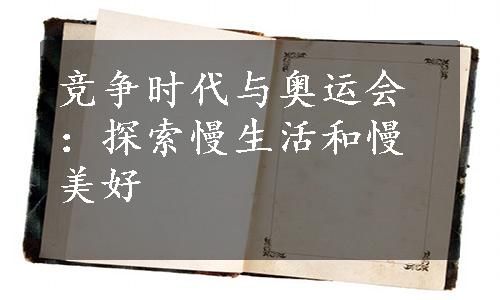 竞争时代与奥运会
：探索慢生活和慢
美好